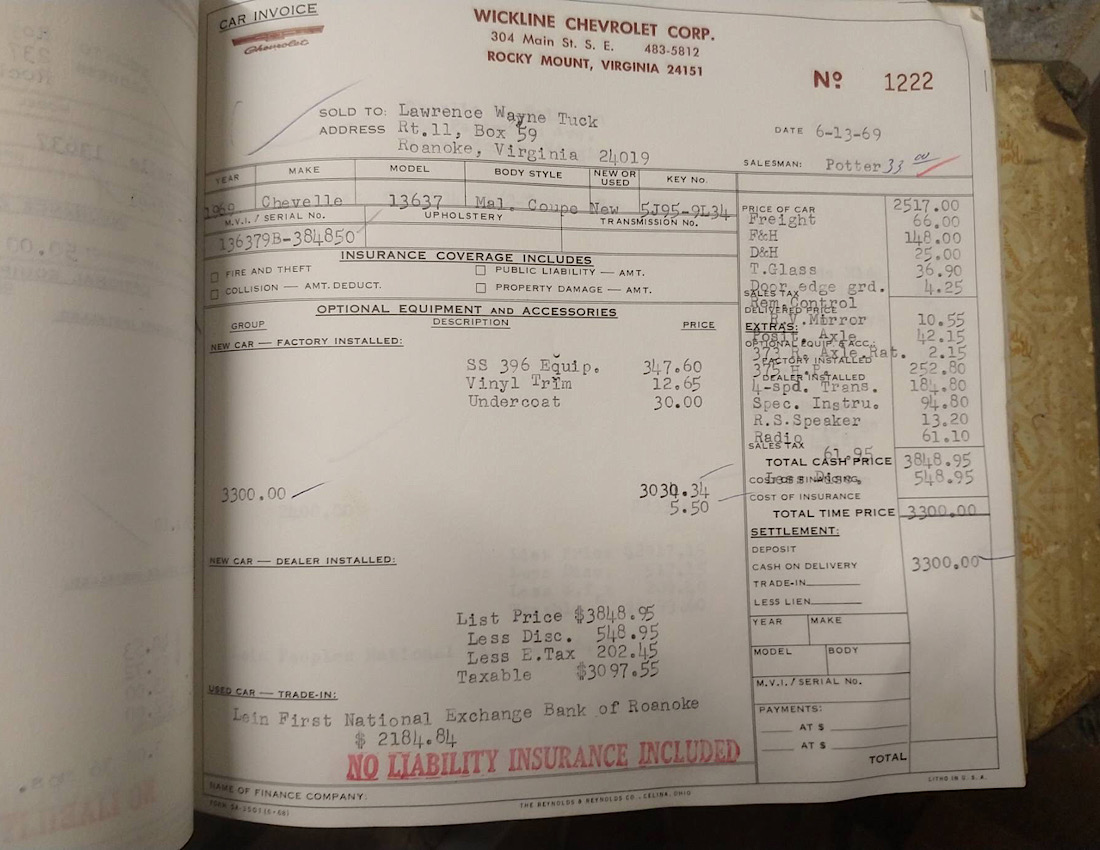 CAR INVOICE
Chevrolet
WICKLINE CHEVROLET CORP.
304 Main St. S. E. 483-5812
ROCKY MOUNT, VIRGINIA 24151
Nº 1222
SOLD TO: Lawrence Wayne Tuck
ADDRESS Rt.11, Box 59
Roanoke, Virginia 24019
DATE 6-13-69
SALESMAN: Potter 33 00
YEAR MAKE MODEL BODY STYLE NEW OR USED KEY No.
1969 Chevelle 13637 Mal. Coupe New 5J95-9L34
M.V.I. / SERIAL No. UPHOLSTERY TRANSMISSION No.
136379B-384850
INSURANCE COVERAGE INCLUDES
FIRE AND THEFT PUBLIC LIABILITY — AMT.
COLLISION — AMT. DEDUCT. PROPERTY DAMAGE — AMT.
OPTIONAL EQUIPMENT AND ACCESSORIES
GROUP DESCRIPTION PRICE
NEW CAR — FACTORY INSTALLED:
SS 396 Equip. 347.60
Vinyl Trim 12.65
Undercoat 30.00
3300.00 3030.34
5.50
NEW CAR — DEALER INSTALLED:
List Price $3848.95
Less Disc. 548.95
Less E.Tax 202.45
Taxable $3097.55
USED CAR — TRADE-IN:
Lein First National Exchange Bank of Roanoke
$ 2184.84
NO LIABILITY INSURANCE INCLUDED
NAME OF FINANCE COMPANY:
THE REYNOLDS & REYNOLDS CO., CELINA, OHIO
LITHO IN U. S. A.
PRICE OF CAR 2517.00
Freight 66.00
F&H 148.00
D&H 25.00
T.Glass 36.90
Door edge grd. 4.25
SALES TAX
Rem. Control
DELIVERED PRICE
R.V.Mirror 10.55
EXTRAS:
Posit. Axle 42.15
OPTIONAL EQUIP & ACC.:
373 R. Axle.Rat. 2.15
FACTORY INSTALLED
375 H.P. 252.80
DEALER INSTALLED
4-spd. Trans. 184.80
Spec. Instru. 94.80
R.S.Speaker 13.20
Radio 61.10
SALES TAX
61.95
TOTAL CASH PRICE 3848.95
COST OF FINANCING Less Disc. 548.95
COST OF INSURANCE
TOTAL TIME PRICE 3300.00
SETTLEMENT:
DEPOSIT
CASH ON DELIVERY 3300.00
TRADE-IN
LESS LIEN
YEAR MAKE
MODEL BODY
M.V.I. / SERIAL No.
PAYMENTS:
AT $
AT $
TOTAL